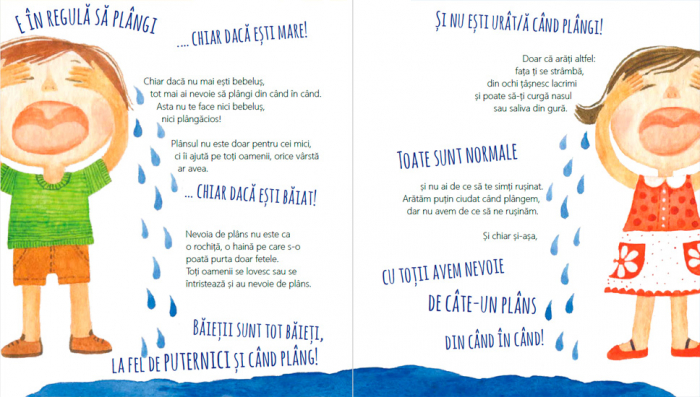 E ÎN REGULĂ SĂ PLÂNGI
.... CHIAR DACĂ EȘTI MARE!
Chiar dacă nu mai ești bebeluș,
tot mai ai nevoie să plângi din când în când.
Asta nu te face nici bebeluș,
nici plângăcios!
Plânsul nu este doar pentru cei mici,
ci îi ajută pe toți oamenii, orice vârstă
ar avea.
... CHIAR DACĂ EȘTI BĂIAT!
Nevoia de plâns nu este ca
o rochiță, o haină pe care s-o
poată purta doar fetele.
Toți oamenii se lovesc sau se
întristează și au nevoie de plâns.
BĂIEȚII SUNT TOT BĂIEȚI,
LA FEL DE PUTERNICI ȘI CÂND PLÂNG!
ȘI NU EȘTI URÂT/Ă CÂND PLÂNGI!
Doar că arăți altfel:
fața ți se strâmbă,
din ochi țâșnesc lacrimi
și poate să-ți curgă nasul
sau saliva din gură.
TOATE SUNT NORMALE
și nu ai de ce să te simți rușinat.
Arătăm puțin ciudat când plângem,
dar nu avem de ce să ne rușinăm.
Și chiar și-așa,
CU TOȚII AVEM NEVOIE
DE CÂTE-UN PLÂNS
DIN CÂND ÎN CÂND!